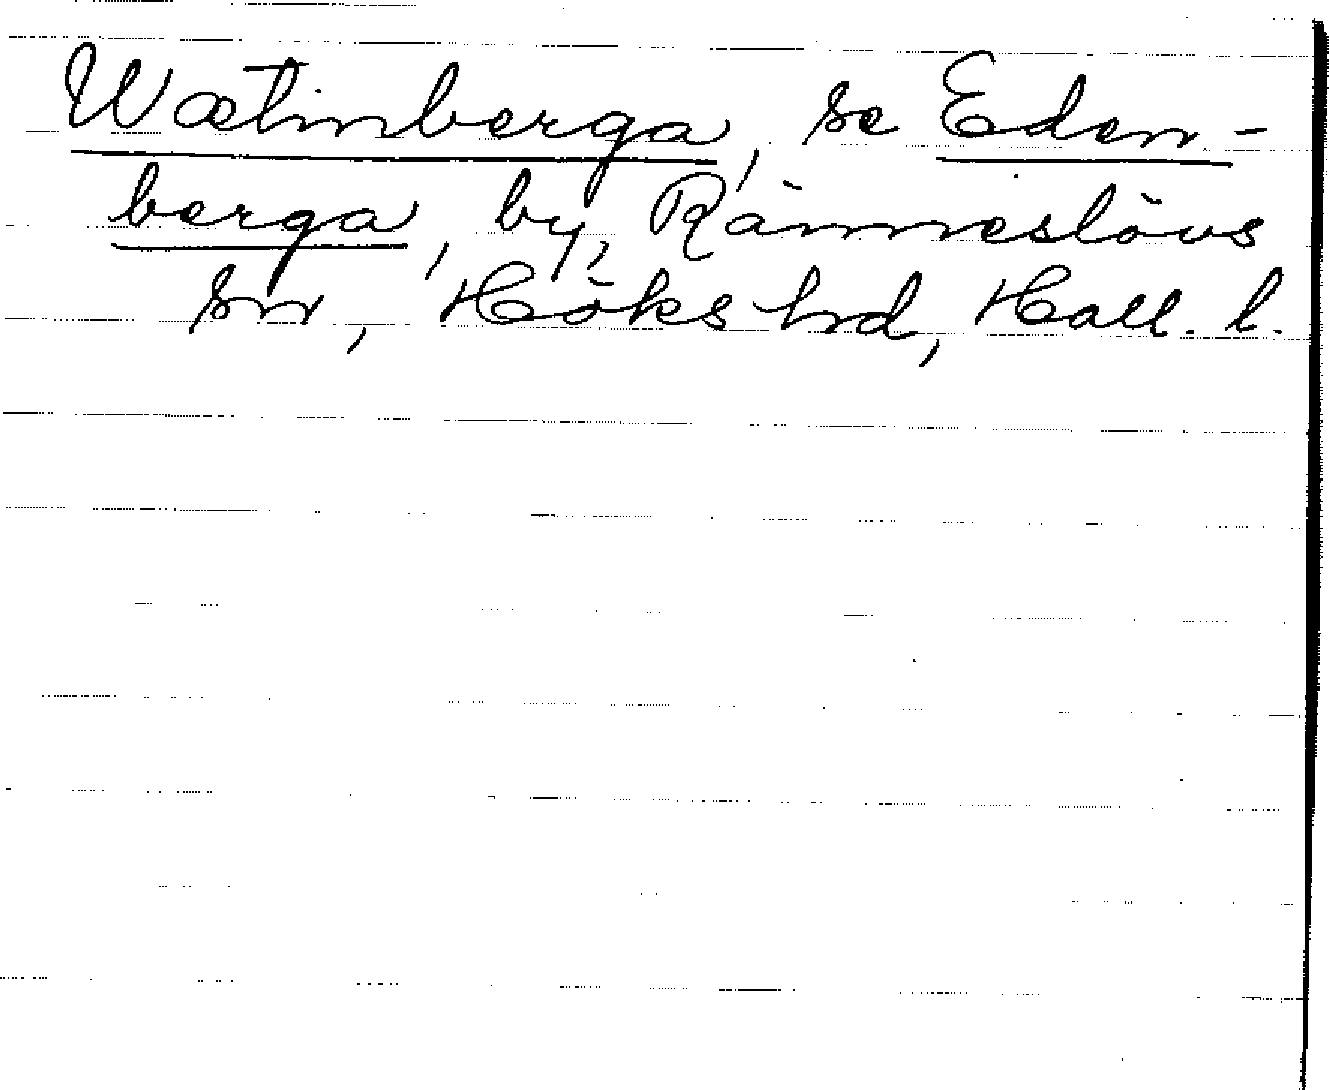 Wætinberga, se Eden-
berga, by, Ränneslövs
sn, Höks hd, Hall. l.